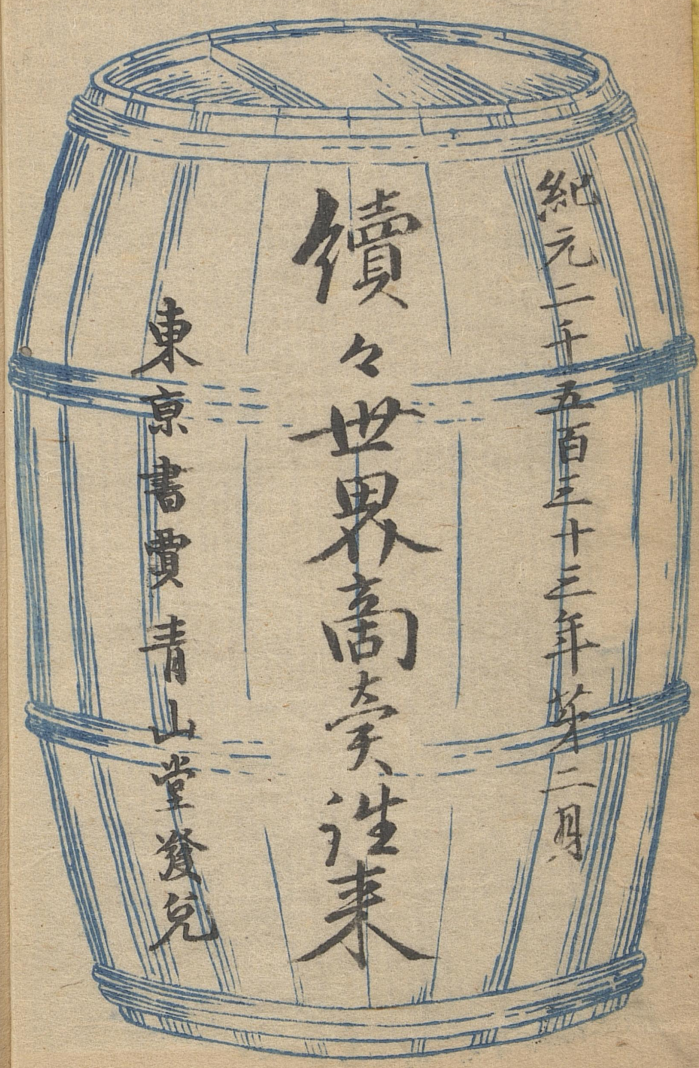 紀元二千五百三十三年第二月
續々世界商賣往来
東京書賈青山堂發兌